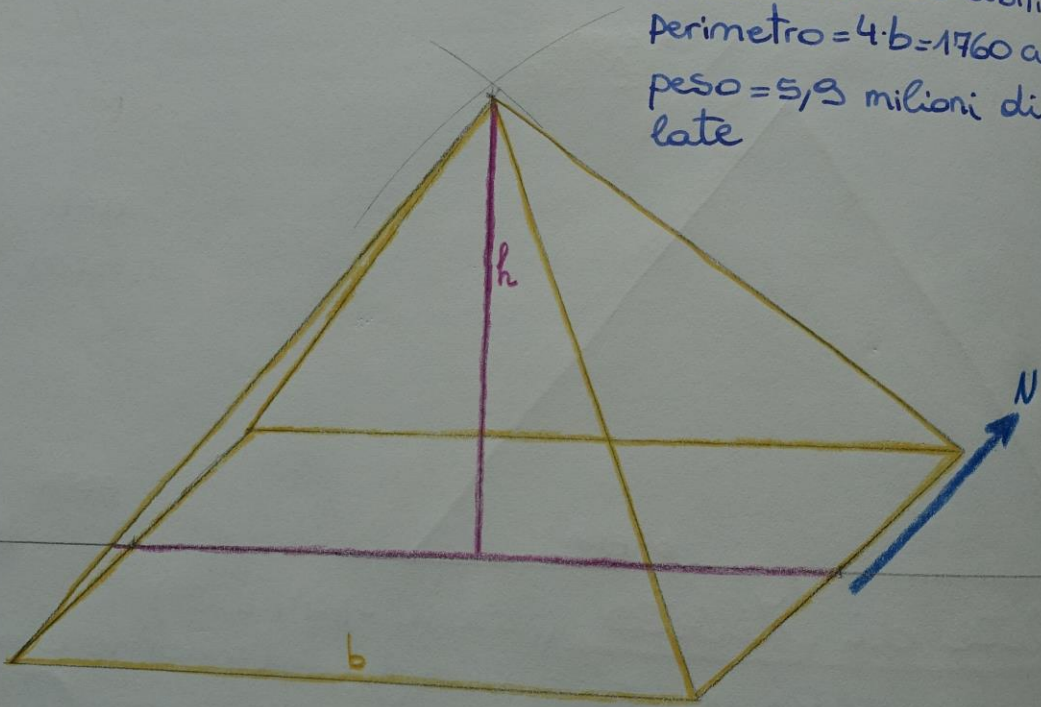 perimetro=4·b=1760
peso=5,9 milioni di
late
h
N
b